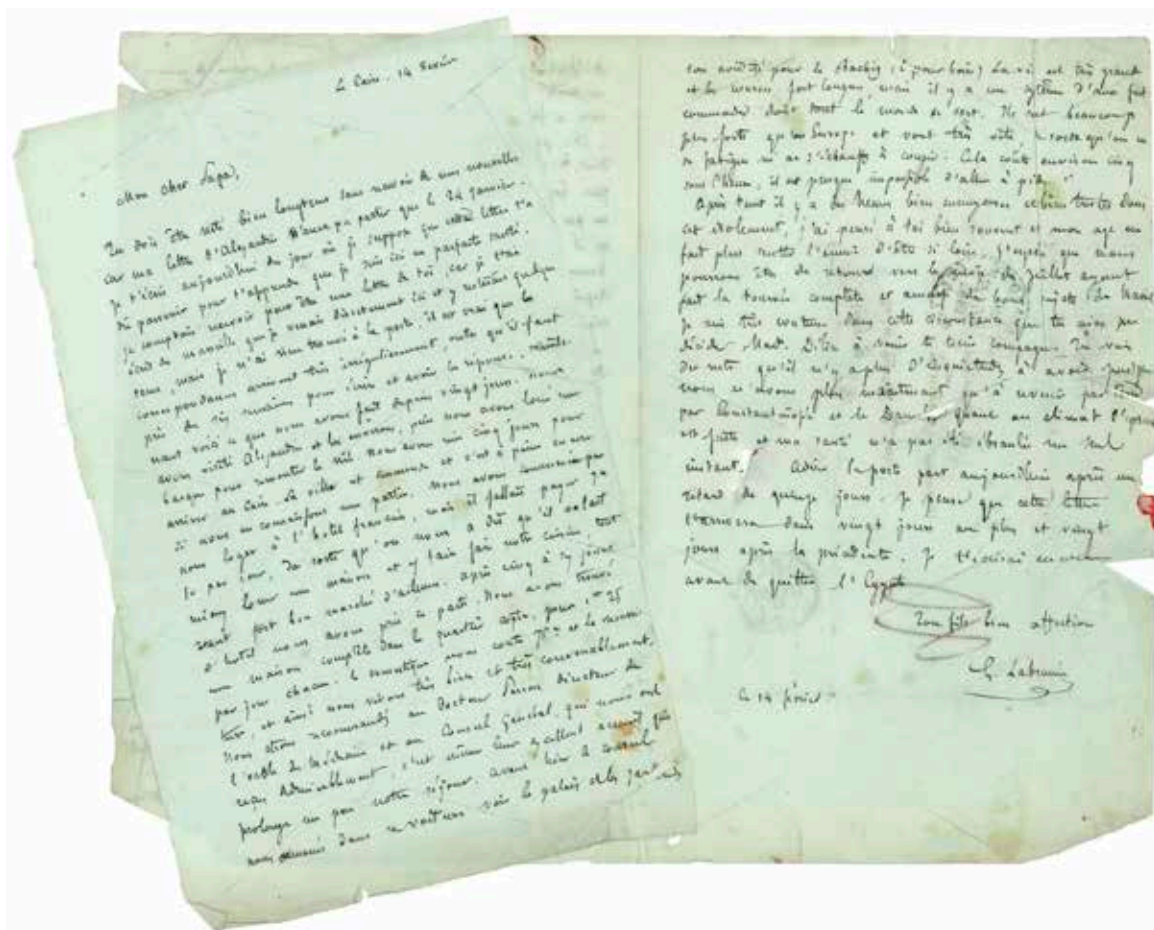 Le Caire, 14 février
Mon cher Papa,
Tu dois être resté bien longtemps sans recevoir de mes nouvelles
car ma lettre d'Alexandrie n'aura pu partir que le 24 janvier.
Je t'écris aujourd'hui du jour où je suppose que cette lettre t'a
dû parvenir pour t'apprendre que je suis ici en parfaite santé.
Je comptais recevoir peut-être une lettre de toi, car je t'avais
écrit de Marseille que je venais directement ici et y resterais quelque
tems, mais je n'ai rien trouvé à la poste. il est vrai que les
correspondances arrivent très irrégulièrement, outre qu'il faut
près de six semaines pour écrire et avoir la réponse. Mainte-
nant voici ce que nous avons fait depuis vingt jours. nous
avons visité Alexandrie et les environs, puis nous avons loué une
barque pour remonter le nil. Nous avons mis cinq jours pour
arriver au Caire. La ville est immense et c'est à peine encore
si nous en connaissons une partie. Nous avons commencé par
nous loger à l'hôtel français, mais il fallait payer
fr par jour, de sorte qu'on nous a dit qu'il valait
mieux louer une maison et y faire faire notre cuisine, tout
étant fort bon marché d'ailleurs. après cinq à six jours
d'hôtel nous avons pris ce parti. Nous avons trouvé
une maison complète dans le quartier cophte, pour 1 fr 25
par jour chacun. le domestique nous coute et le
ture, et ainsi nous vivons très bien et très convenablement.
Nous étions recommandés au docteur Perron directeur de
l'école de Médecine et au Consul général, qui nous ont
reçus admirablement, c'est même leur excellent accueil qui
prolonge un peu notre séjour. avant hier le consul
nous emmenés dans sa voiture voir le palais et les jardins
son avidité pour le Backhiz (: pour boire) La ville est très grande
et les courses fort longues, mais il y a un système d'ânes fort
commodes dont tout le monde se sert. Ils sont beaucoup
plus forts qu'en Europe et vont très vite de sorte qu'on ne
se fatigue ni ne s'échauffe à courir. Cela coûte environ cinq
sous l'heure, il est presque impossible d'aller à pied.
Après tout il y a des heures bien ennuyeuses et bien tristes dans
cet isolement, j'ai pensé à toi bien souvent et mon âge me
fait plus sentir l'ennui d'être si loin. J'espère que nous
pourrons être de retour vers le mois de Juillet ayant
fait la tournée complète et amassé de bons sujets de travail
Je suis très content dans cette circonstance que tu aies pu
décider Mad. à venir te tenir compagnie. Tu vois
du reste qu'il n'y a plus d'inquiétudes à avoir puisque
nous n'avons plus maintenant qu'à revenir par
par Constantinople et le Danube quant au climat l'épreuve
est faite et ma santé n'a pas été ébranlée un seul
instant. Adieu la poste part aujourd'hui après un
retard de quinze jours. Je pense que cette lettre
t'arrivera dans vingt jours au plus et vingt
jours après la précédente. Je t'écrirai encore
avant de quitter l'Egypte
Ton fils bien affectionné
G. Labrunie
Ce 14 février.